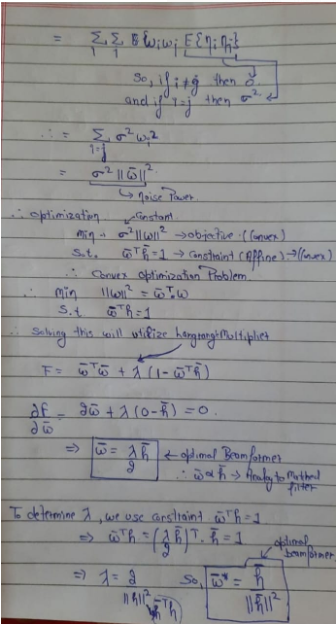 = Σ_i Σ_j ω_i ω_j E{η_i η_j}
So, if i≠j then 0
and if i=j then σ²
∴ = Σ_{i=j} σ² ω_i²
= σ² ||ω̄||²
↳ Noise Power
∴ optimization constant
min · σ²||ω̄||² → objective (Convex)
S.t. ω̄ᵀh̄=1 → Constraint (Affine) → (Convex)
∴ Convex optimization Problem
∴ min ||ω||² = ω̄ᵀ.ω
S.t ω̄ᵀh=1
∴ Solving this will utilize Multiplier
F = ω̄ᵀω̄ + λ (1-ω̄ᵀh̄)
∂F/∂ω̄ = 2ω̄ + λ(0-h̄) = 0.
⇒ ω̄ = λh̄/2 ← optimal Beamformer
∴ ω̄ ∝ h̄ → Analog to Matched
filter
To determine λ, we use constraint ω̄ᵀh=1
⇒ ω̄ᵀh = (λ/2 h̄)ᵀ. h̄ = 1
optimal
beamformer.
⇒ λ = 2/||h||² So, ω̄* = h̄/||h̄||²
h̄ᵀh